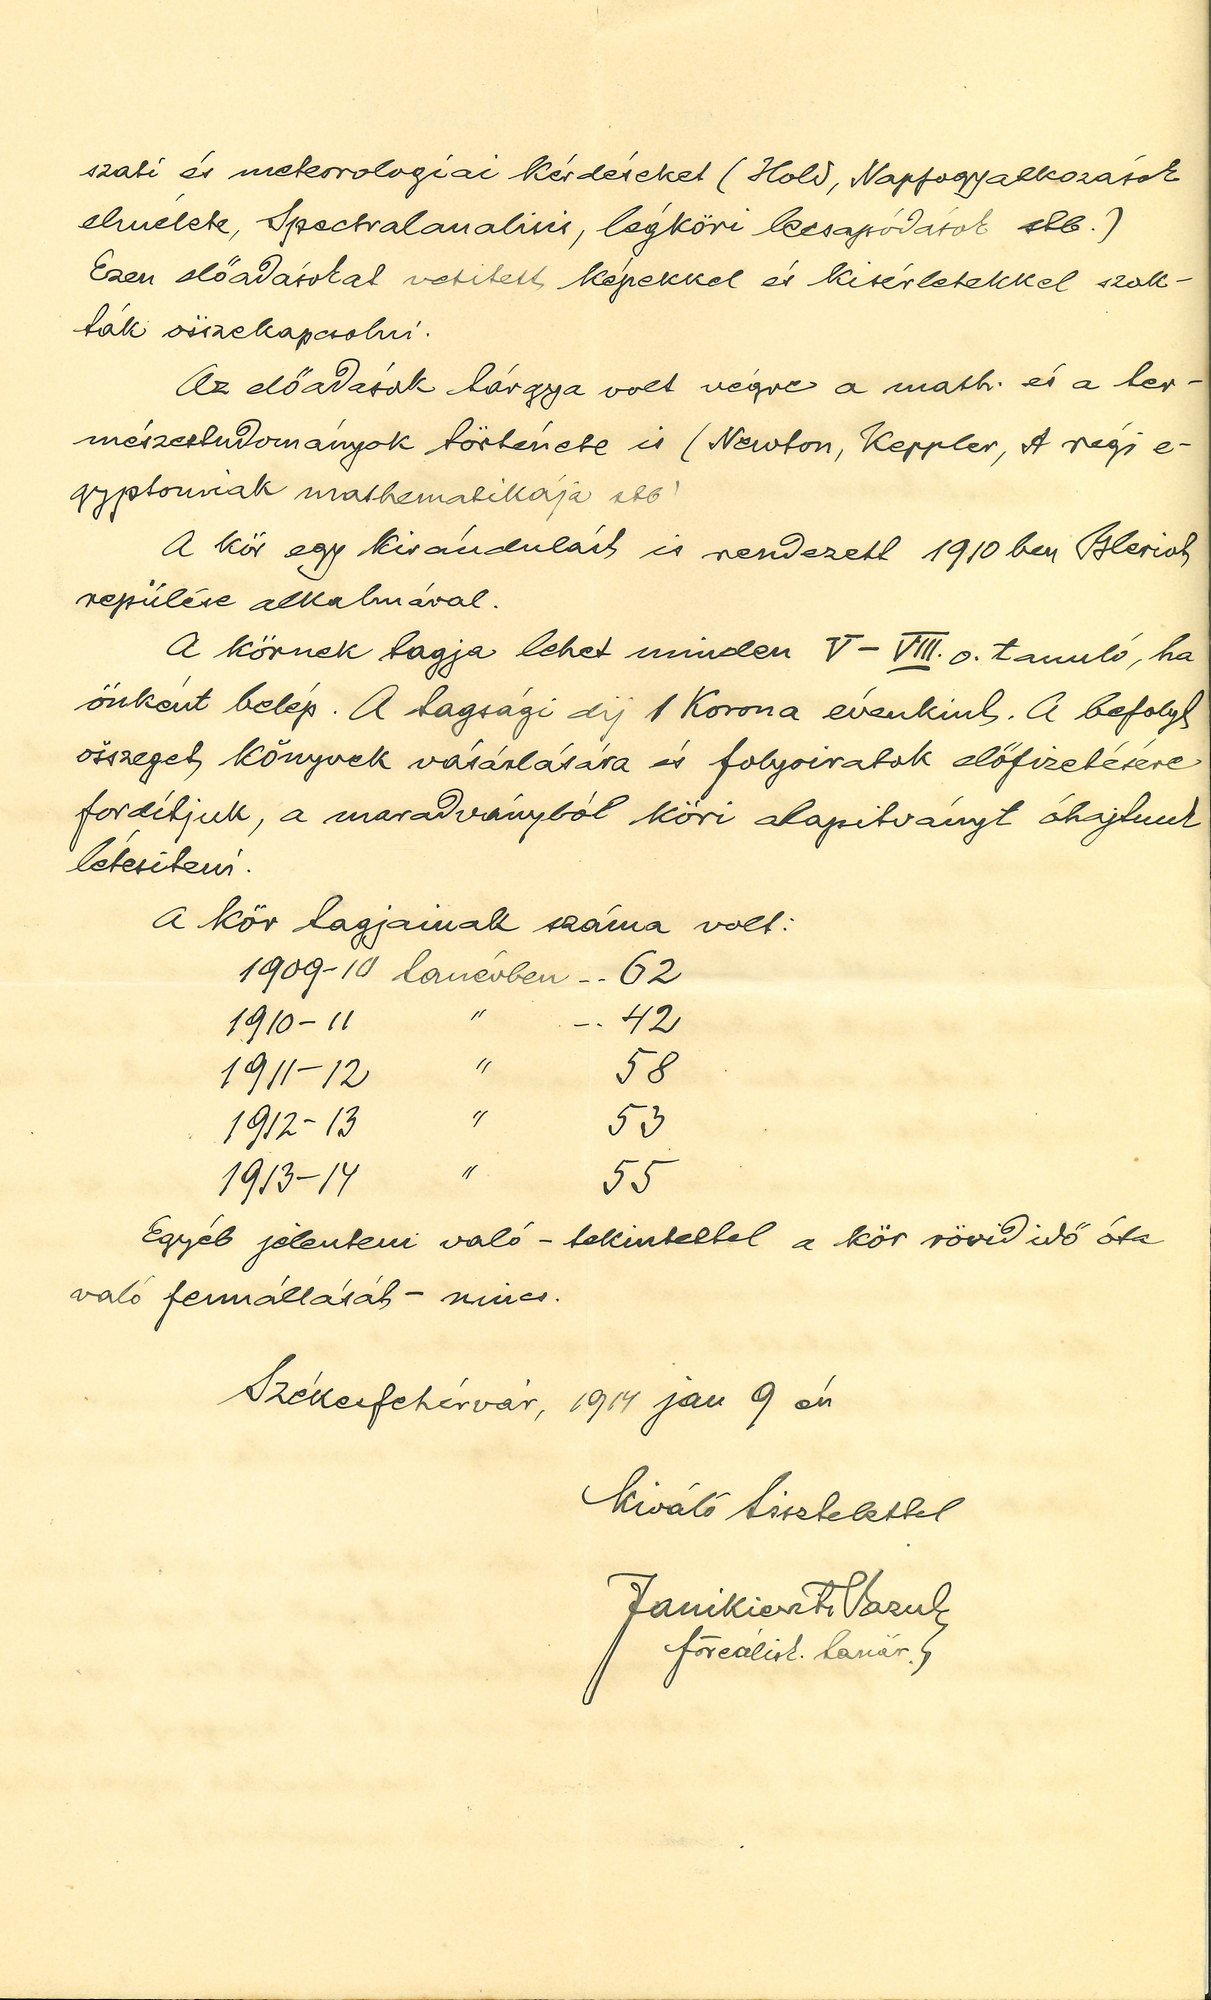 szati és meteorologiai kérdéseket (Hold, Napfogyatkozások
elmélete, Spectralanalisis, légköri lecsapódások stb.)
Ezen előadásokat vetitett képekkel és kisérletekkel szok-
ták összekapcsolni.
Az előadások tárgya volt végre a math. és a ter-
mészettudományok története is (Newton, Keppler, A régi e-
gyptomiak mathematikája stb
A kör egy kirándulást is rendezett 1910 ben Bleriot
repülése alkalmával.
A körnek tagja lehet minden V-VIII. o. tanuló, ha
önként belép. A tagsági dij 1 Korona évenkint. A befolyt
összeget könyvek vásárlására és folyoiratok előfizetésére
fordítjuk, a maradványból köri alapitványt óhajtunk
létesiteni.
A kör tagjainak száma volt:
1909-10 tanévben -- 62
1910-11 " -- 42
1911-12 " 58
1912-13 " 53
1913-14 " 55
Egyéb jelenteni való - tekintettel a kör rövid idő óta
való fennállását - nincs.
Székesfehérvár, 1914 jan 9 én
Kiváló tisztelettel
Vazul
főreálisk. tanár.